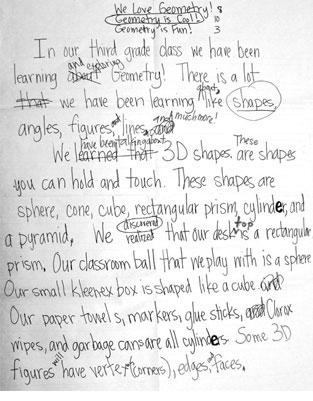 We Love Geometry! 8
Geometry is Cool! 10
Geometry is Fun! 3
In our third grade class we have been
and exploring
learning about Geometry! There is a lot
about,
that we have been learning like shapes,
and much more!
angles, figures, lines, and
have been talking about These
We learned that 3D shapes. are shapes
you can hold and touch. These shapes are
sphere, cone, cube, rectangular prism, cylinder, and
discovered top
a pyramid. We realized that our desk is a rectangular
prism. Our classroom ball that we play with is a sphere
Our small kleenex box is shaped like a cube and
Our paper towels, markers, glue sticks, and Clorox
wipes, and garbage cans are all cylinders. Some 3D
will
figures have vertex (corners), edges, faces.